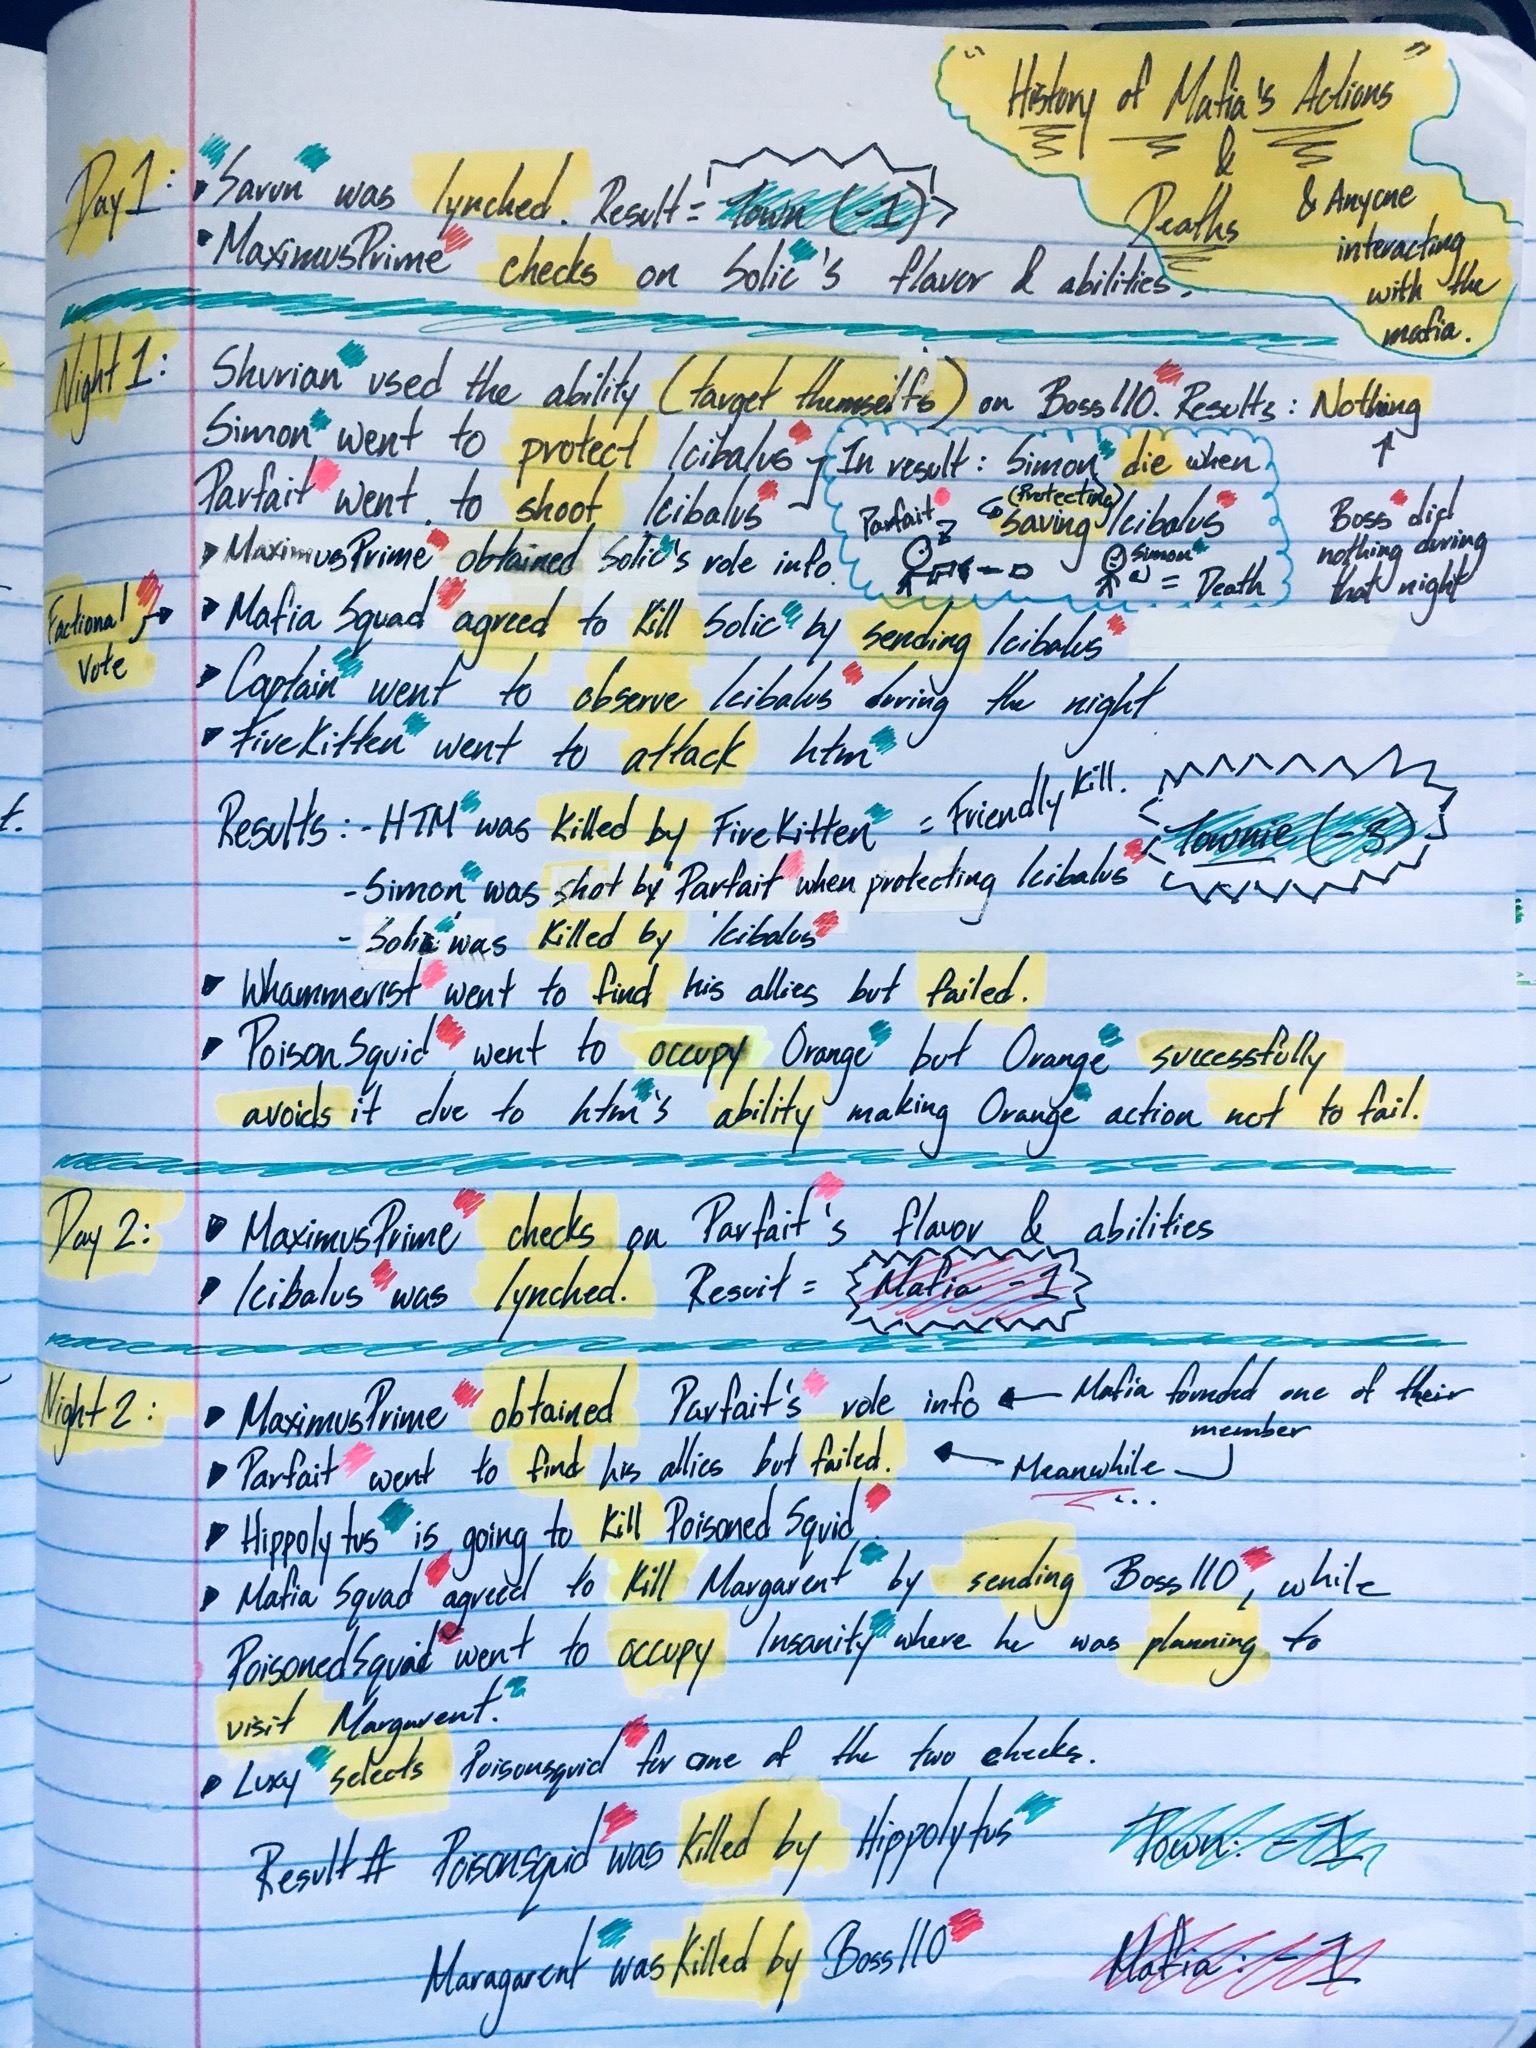 " History of Mafia's Actions "
&
Deaths
& Anyone
interacting
with the
mafia.
Day 1: Savun was lynched. Result = Town (-1)
MaximusPrime checks on Solic's flavor & abilities.
Night 1: Shurian used the ability (target themselfs) on Boss110. Results: Nothing
Simon went to protect Icibalus
Parfait went to shoot Icibalus
In result: Simon die when
(Protecting)
saving Icibalus
Parfait
Simon
= Death
Boss did
nothing during
that night
MaximusPrime obtained Solic's role info.
Factional
vote
Mafia Squad agreed to Kill Solic by sending Icibalus
Captain went to observe Icibalus during the night
FireKitten went to attack htm
Results: - HTM was Killed by FireKitten = Friendly Kill.
Townie (-3)
- Simon was shot by Parfait when protecting Icibalus
- Solic was Killed by Icibalus
Whammerist went to find his allies but failed.
PoisonSquid went to occupy Orange but Orange successfully
avoids it due to htm's ability making Orange action not to fail.
Day 2: MaximusPrime checks on Parfait's flavor & abilities
Icibalus was lynched. Result = Mafia -1
Night 2: MaximusPrime obtained Parfait's role info ← Mafia founded one of their
member
Parfait went to find his allies but failed. ← Meanwhile
...
Hippolytus is going to Kill Poisoned Squid.
Mafia Squad agreed to Kill Margarent by sending Boss110, while
PoisonedSquid went to occupy Insanity where he was planning to
visit Margarent.
Luxy selects Poisonsquid for one of the two checks.
Result # Poisonsquid was Killed by Hippolytus Town: -1
Maragarent was Killed by Boss110 Mafia: -1
t.